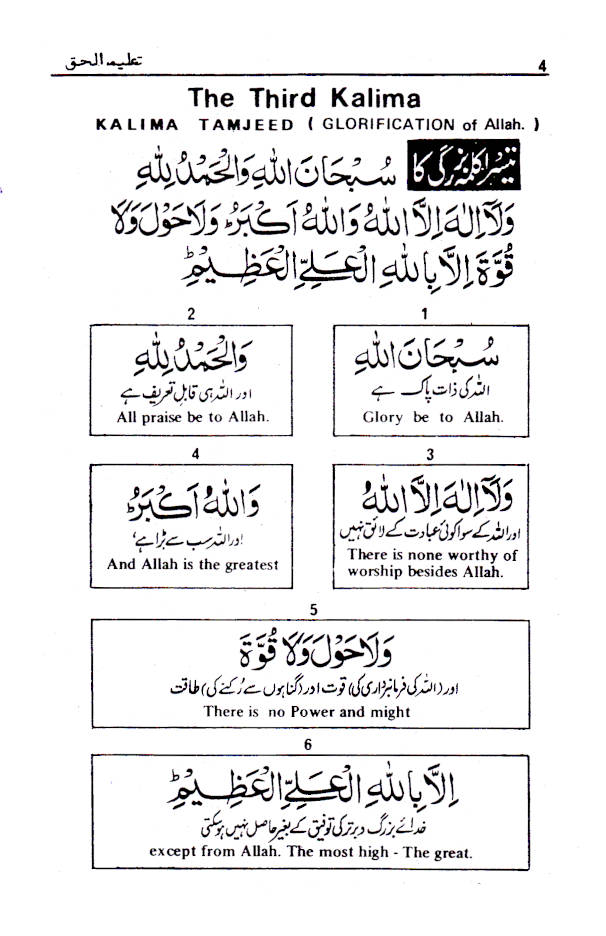 تعلیم الحق
4
The Third Kalima
KALIMA TAMJEED ( GLORIFICATION of Allah. )
تیسرا کلمہ بزرگی کا سُبْحَانَ اللهِ وَالْحَمْدُ لِلّٰهِ
وَلَآ اِلٰهَ اِلَّا اللهُ وَاللهُ اَكْبَرُ وَلَا حَوْلَ وَلَا
قُوَّةَ اِلَّا بِاللهِ الْعَلِيِّ الْعَظِيْمِ
1
سُبْحَانَ اللهِ
اللہ کی ذات پاک ہے
Glory be to Allah.
2
وَالْحَمْدُ لِلّٰهِ
اور اللہ ہی قابلِ تعریف ہے
All praise be to Allah.
3
وَلَآ اِلٰهَ اِلَّا اللهُ
اور اللہ کے سوا کوئی عبادت کے لائق نہیں
There is none worthy of
worship besides Allah.
4
وَاللهُ اَكْبَرُ
اور اللہ سب سے بڑا ہے
And Allah is the greatest
5
وَلَا حَوْلَ وَلَا قُوَّةَ
اور (اللہ کی فرمانبرداری کی) قوت اور (گناہوں سے رُکنے کی) طاقت
There is no Power and might
6
اِلَّا بِاللهِ الْعَلِيِّ الْعَظِيْمِ
خدائے بزرگ و برتر کی توفیق کے بغیر حاصل نہیں ہوسکتی
except from Allah. The most high - The great.